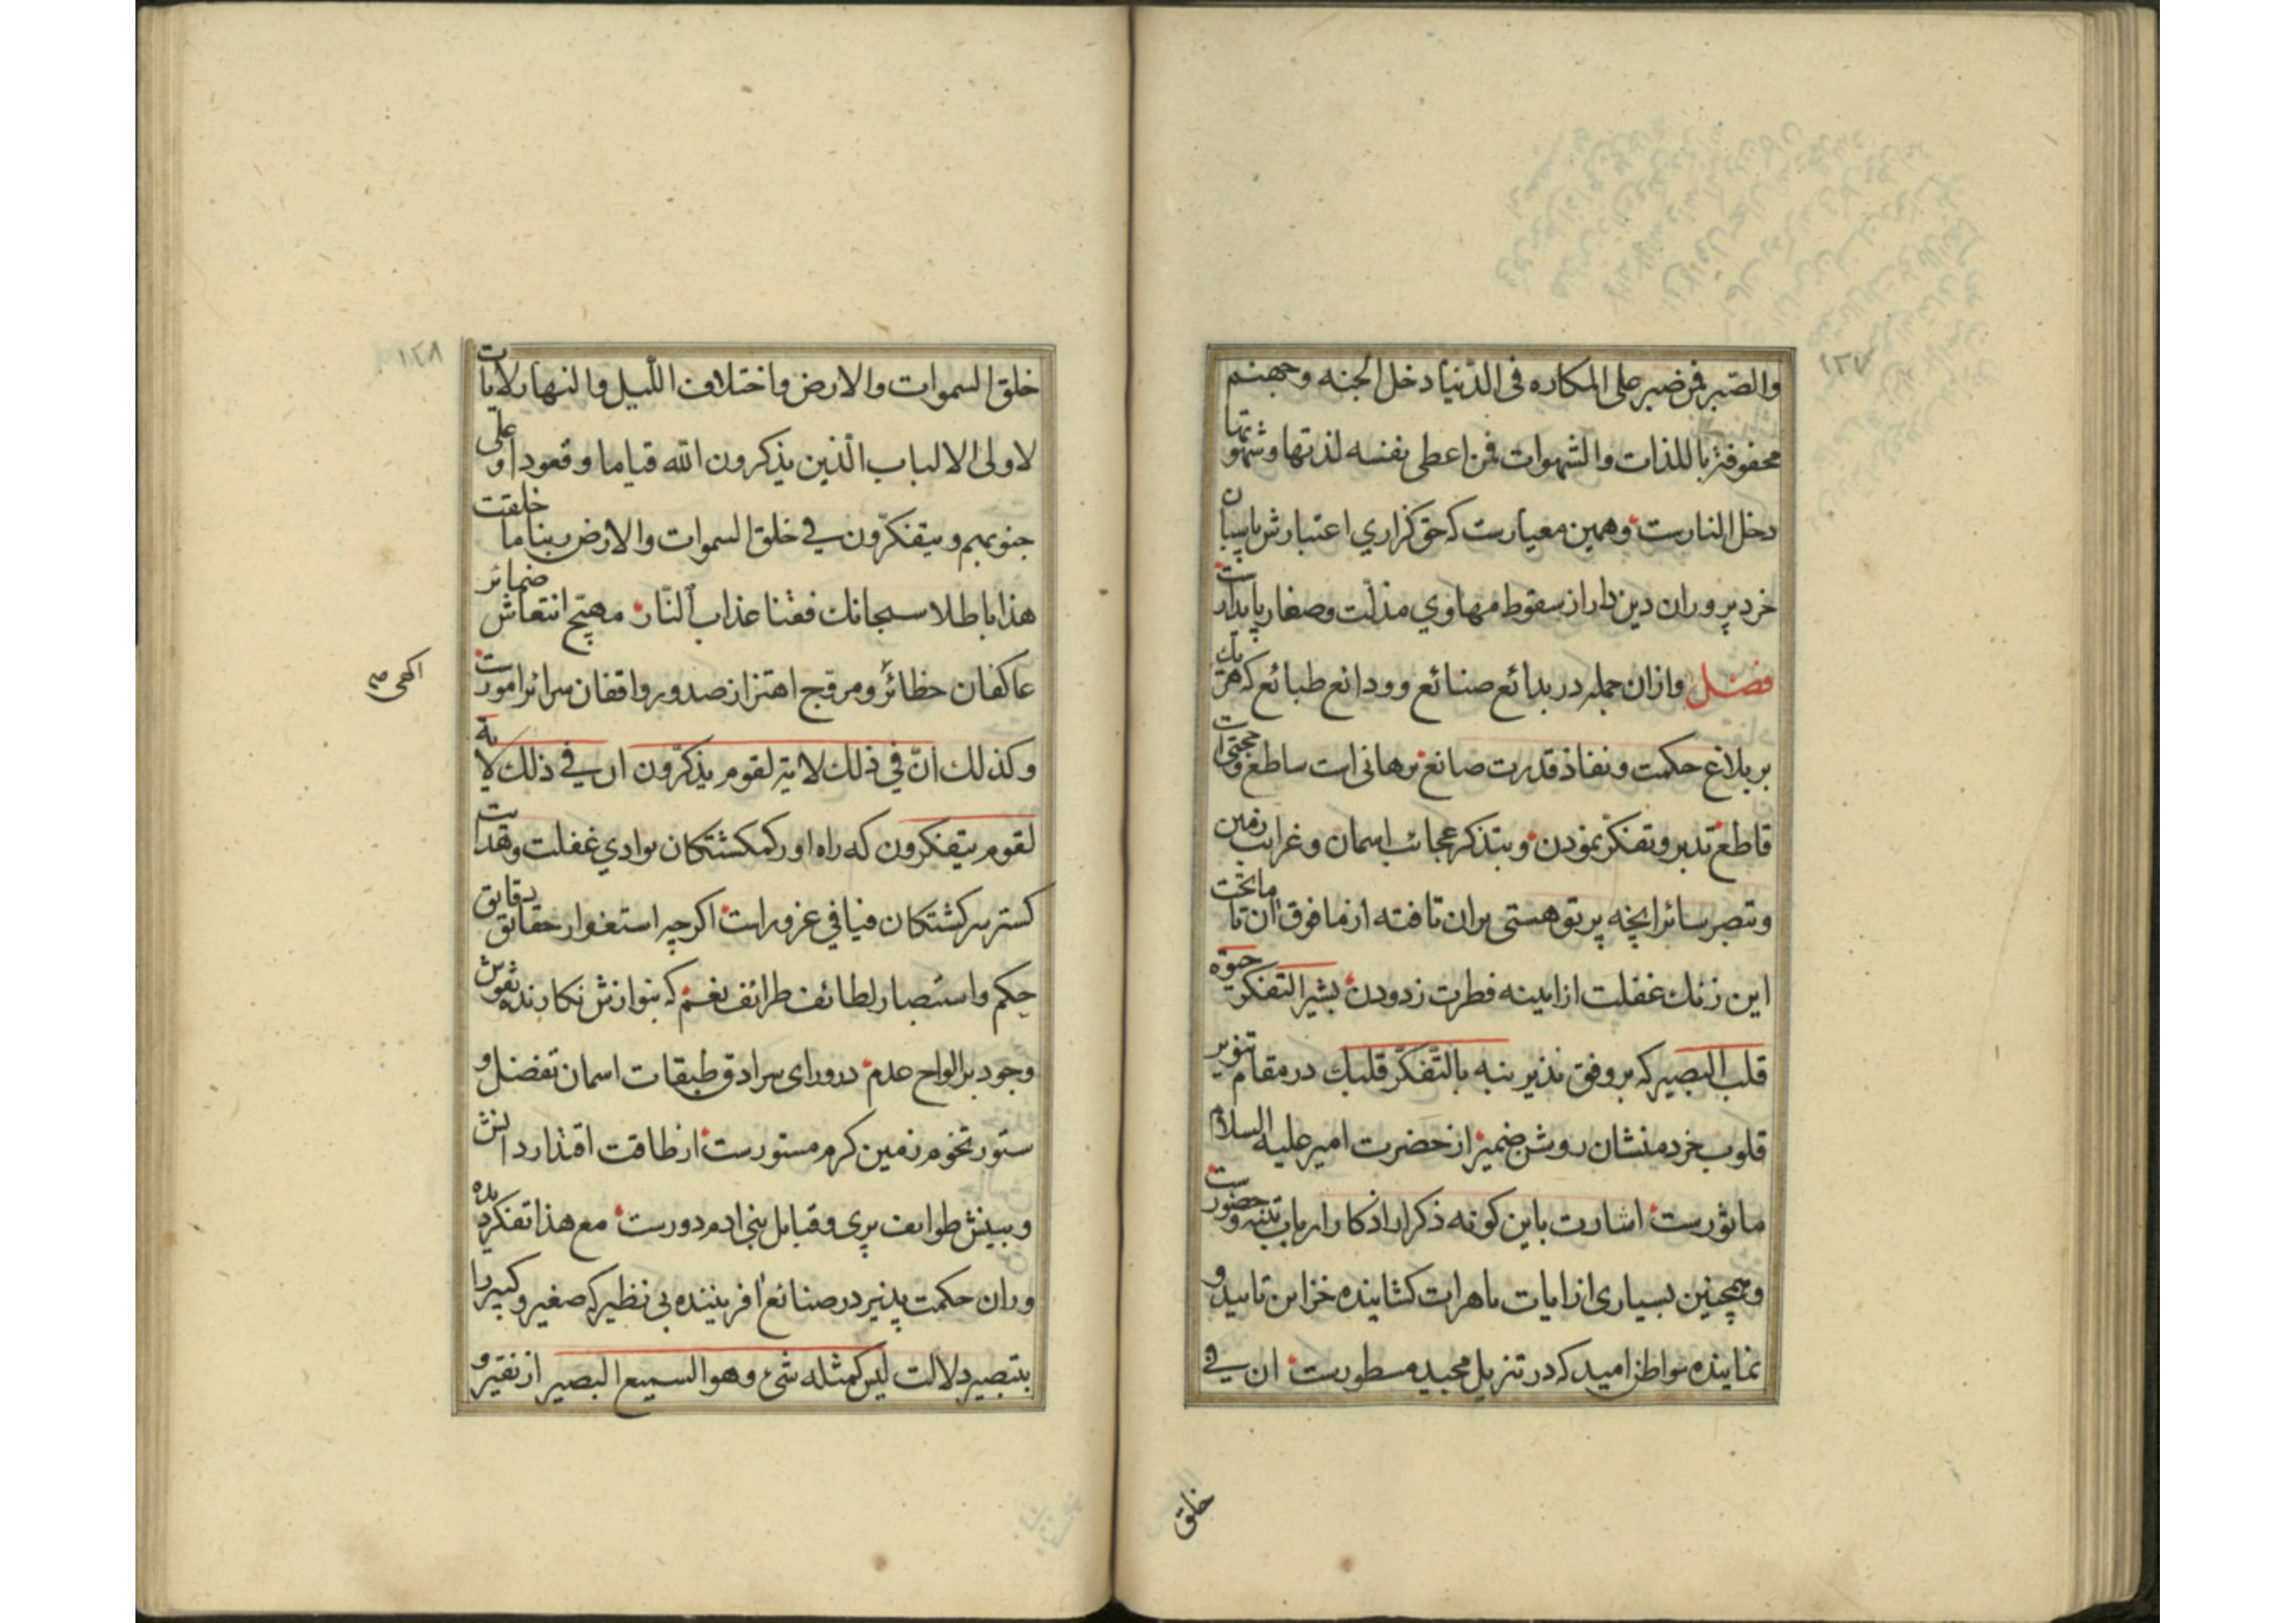 ١٢٧
والصبر فمن صبر على المكاره فى الدّنيا دخل الجنه وجهنم
محفوفة باللذات والشهوات فمن اعطى نفسه لذتها وشهوتها
دخل النارست وهمين معيارست كه حق كزاري اعتبارش پاسبان
خرد پروران دين دار از سقوط مهاوي مذلّت وصغار پايدارست
فصل وازان جمله در بدائع صنائع وودائع طبائع كه هر يك
بر بلاغ حكمت ونفاذ قدرت صانع برهانى است ساطع وحجتى است
قاطع تدبر وتفكر نمودن وبتذكر عجائب اسمان وغرائب زمين
وتبصر سائر انچه پرتو هستى بران تافته از ما فوق ان تا ما تحت
اين زنك غفلت از اينه فطرت زدودن بشير التفكر حيوة
قلب البصير كه بر وفق نذير نبه بالتّفكّر قلبك در مقام تنوير
قلوب خردمنشان روشن ضمير از حضرت امير عليه السلام
ماثورست اشارت باين كونه ذكر از اذكار ارباب تنبّه وحضورست
وهمچنين بسيارى از ايات باهرات كشاينده خزاين تاييد و
نماينده مواطن اميد كه در تنزيل مجيد مسطورست ان في
خلق
١٢٨
خلق السموات والارض واختلاف اللّيل والنهار لايات
لاولى الالباب الّذين يذكرون الله قياما وقعودا وعلى
جنوبهم ويتفكّرون في خلق السموات والارض ربنا ما خلقت
هذا باطلا سبحانك فقنا عذاب النّار مهيّج انتعاش ضمائر
عاكفان حظائر ومروّج اهتزاز صدور واقفان سرائر امورست
اكهى صح
وكذلك انّ في ذلك لاية لقوم يذكّرون ان في ذلك لاية
لقوم يتفكرون كه راه اور كمكشتكان بوادي غفلت وهدايت
كستر سركشتكان فيافي غرورست اكرچه استغوار حقائق دقايق
حكم واستبصار لطائف طرائف نعم كه بنوازش نكارنده نقوش
وجود بر الواح عدم در وراى سرادق طبقات اسمان تفضل و
ستور تخوم زمين كرم مستورست از طاقت اقتدار دانش
وبينش طوايف پرى وقبايل بنى ادم دورست مع هذا تفكر ديده
وران حكمت پذير در صنائع افريننده بى نظير كه صغير وكبير را
بتبصير دلالت ليس كمثله شئ وهو السميع البصير از نقير و